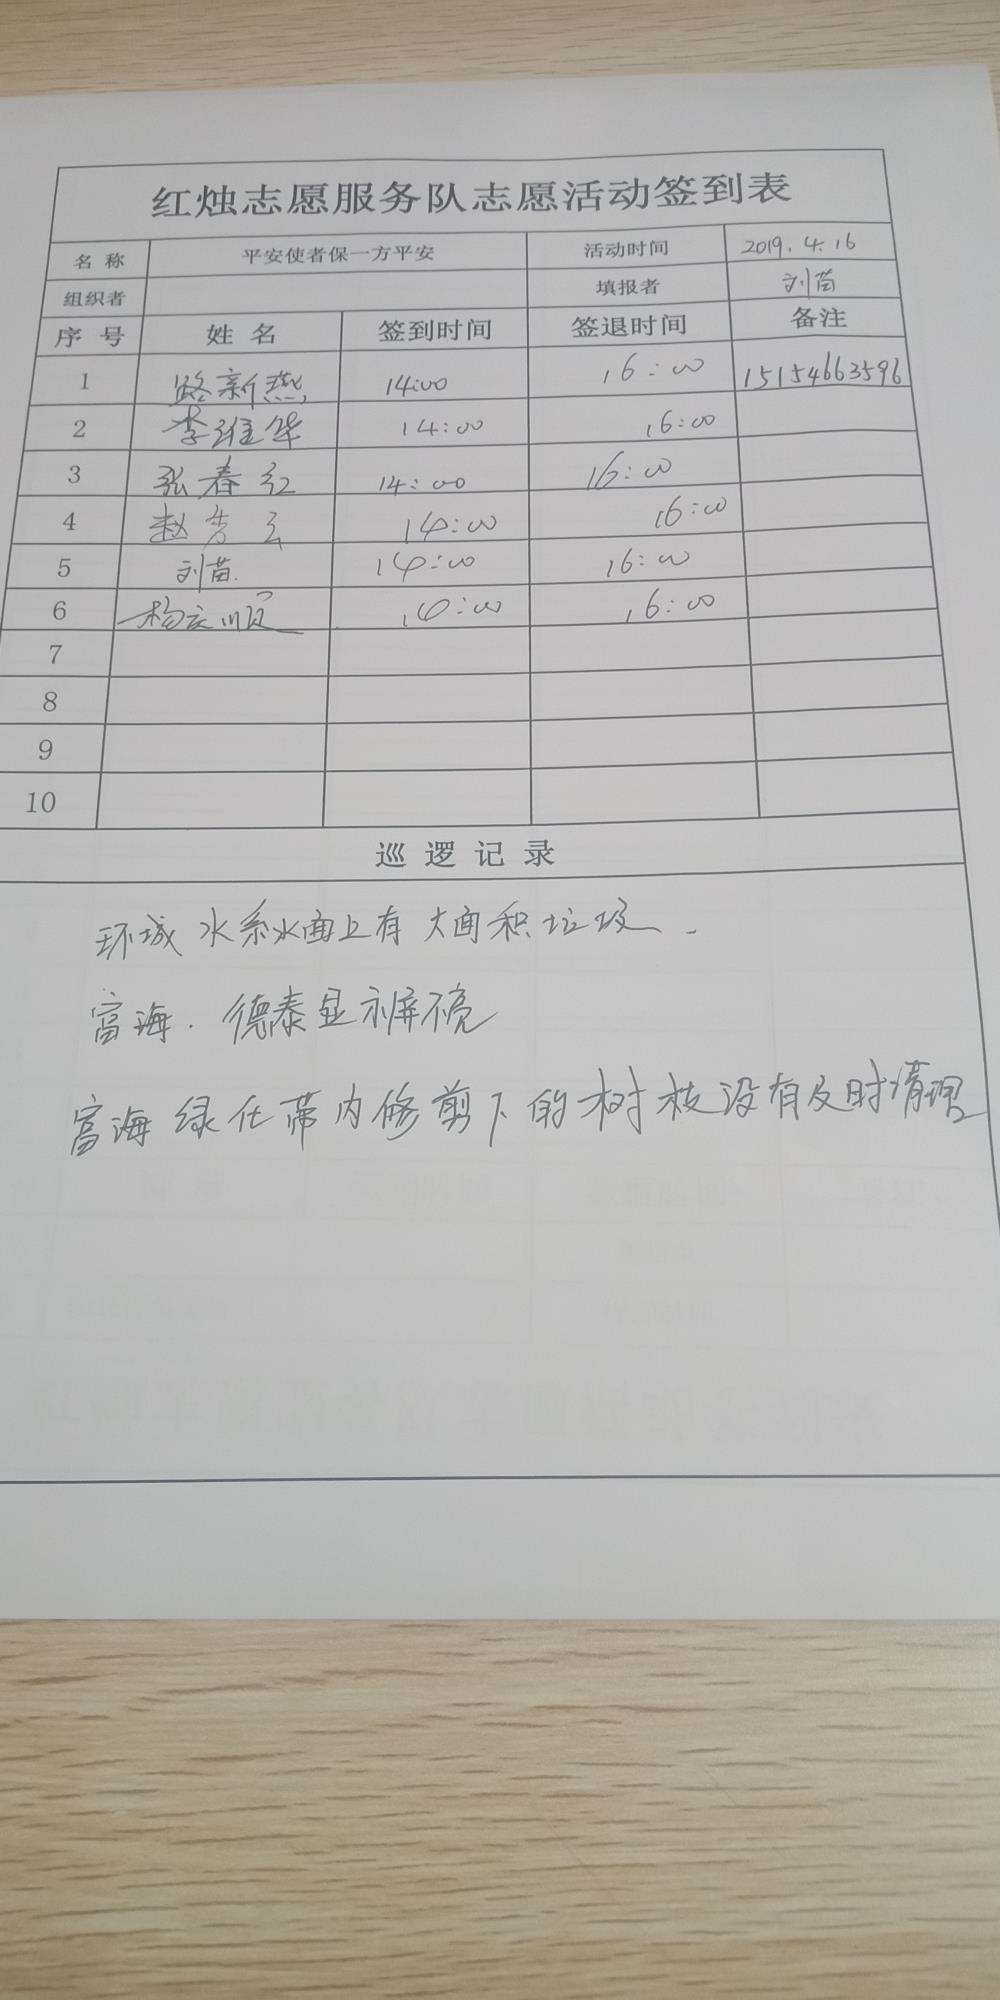 红烛志愿服务队志愿活动签到表
名称 平安使者保一方平安 活动时间 2019.4.16
组织者 填报者 刘苗
序号 姓名 签到时间 签退时间 备注
1 路新燕 14:00 16:00 15154663596
2 李维华 14:00 16:00
3 张春红 14:00 16:00
4 赵秀云 14:00 16:00
5 刘苗 14:00 16:00
6 杨庆顺 14:00 16:00
7
8
9
10
巡逻记录
环城水系水面上有大面积垃圾.
富海.德泰显示屏不亮
富海绿化带内修剪下的树枝没有及时清理